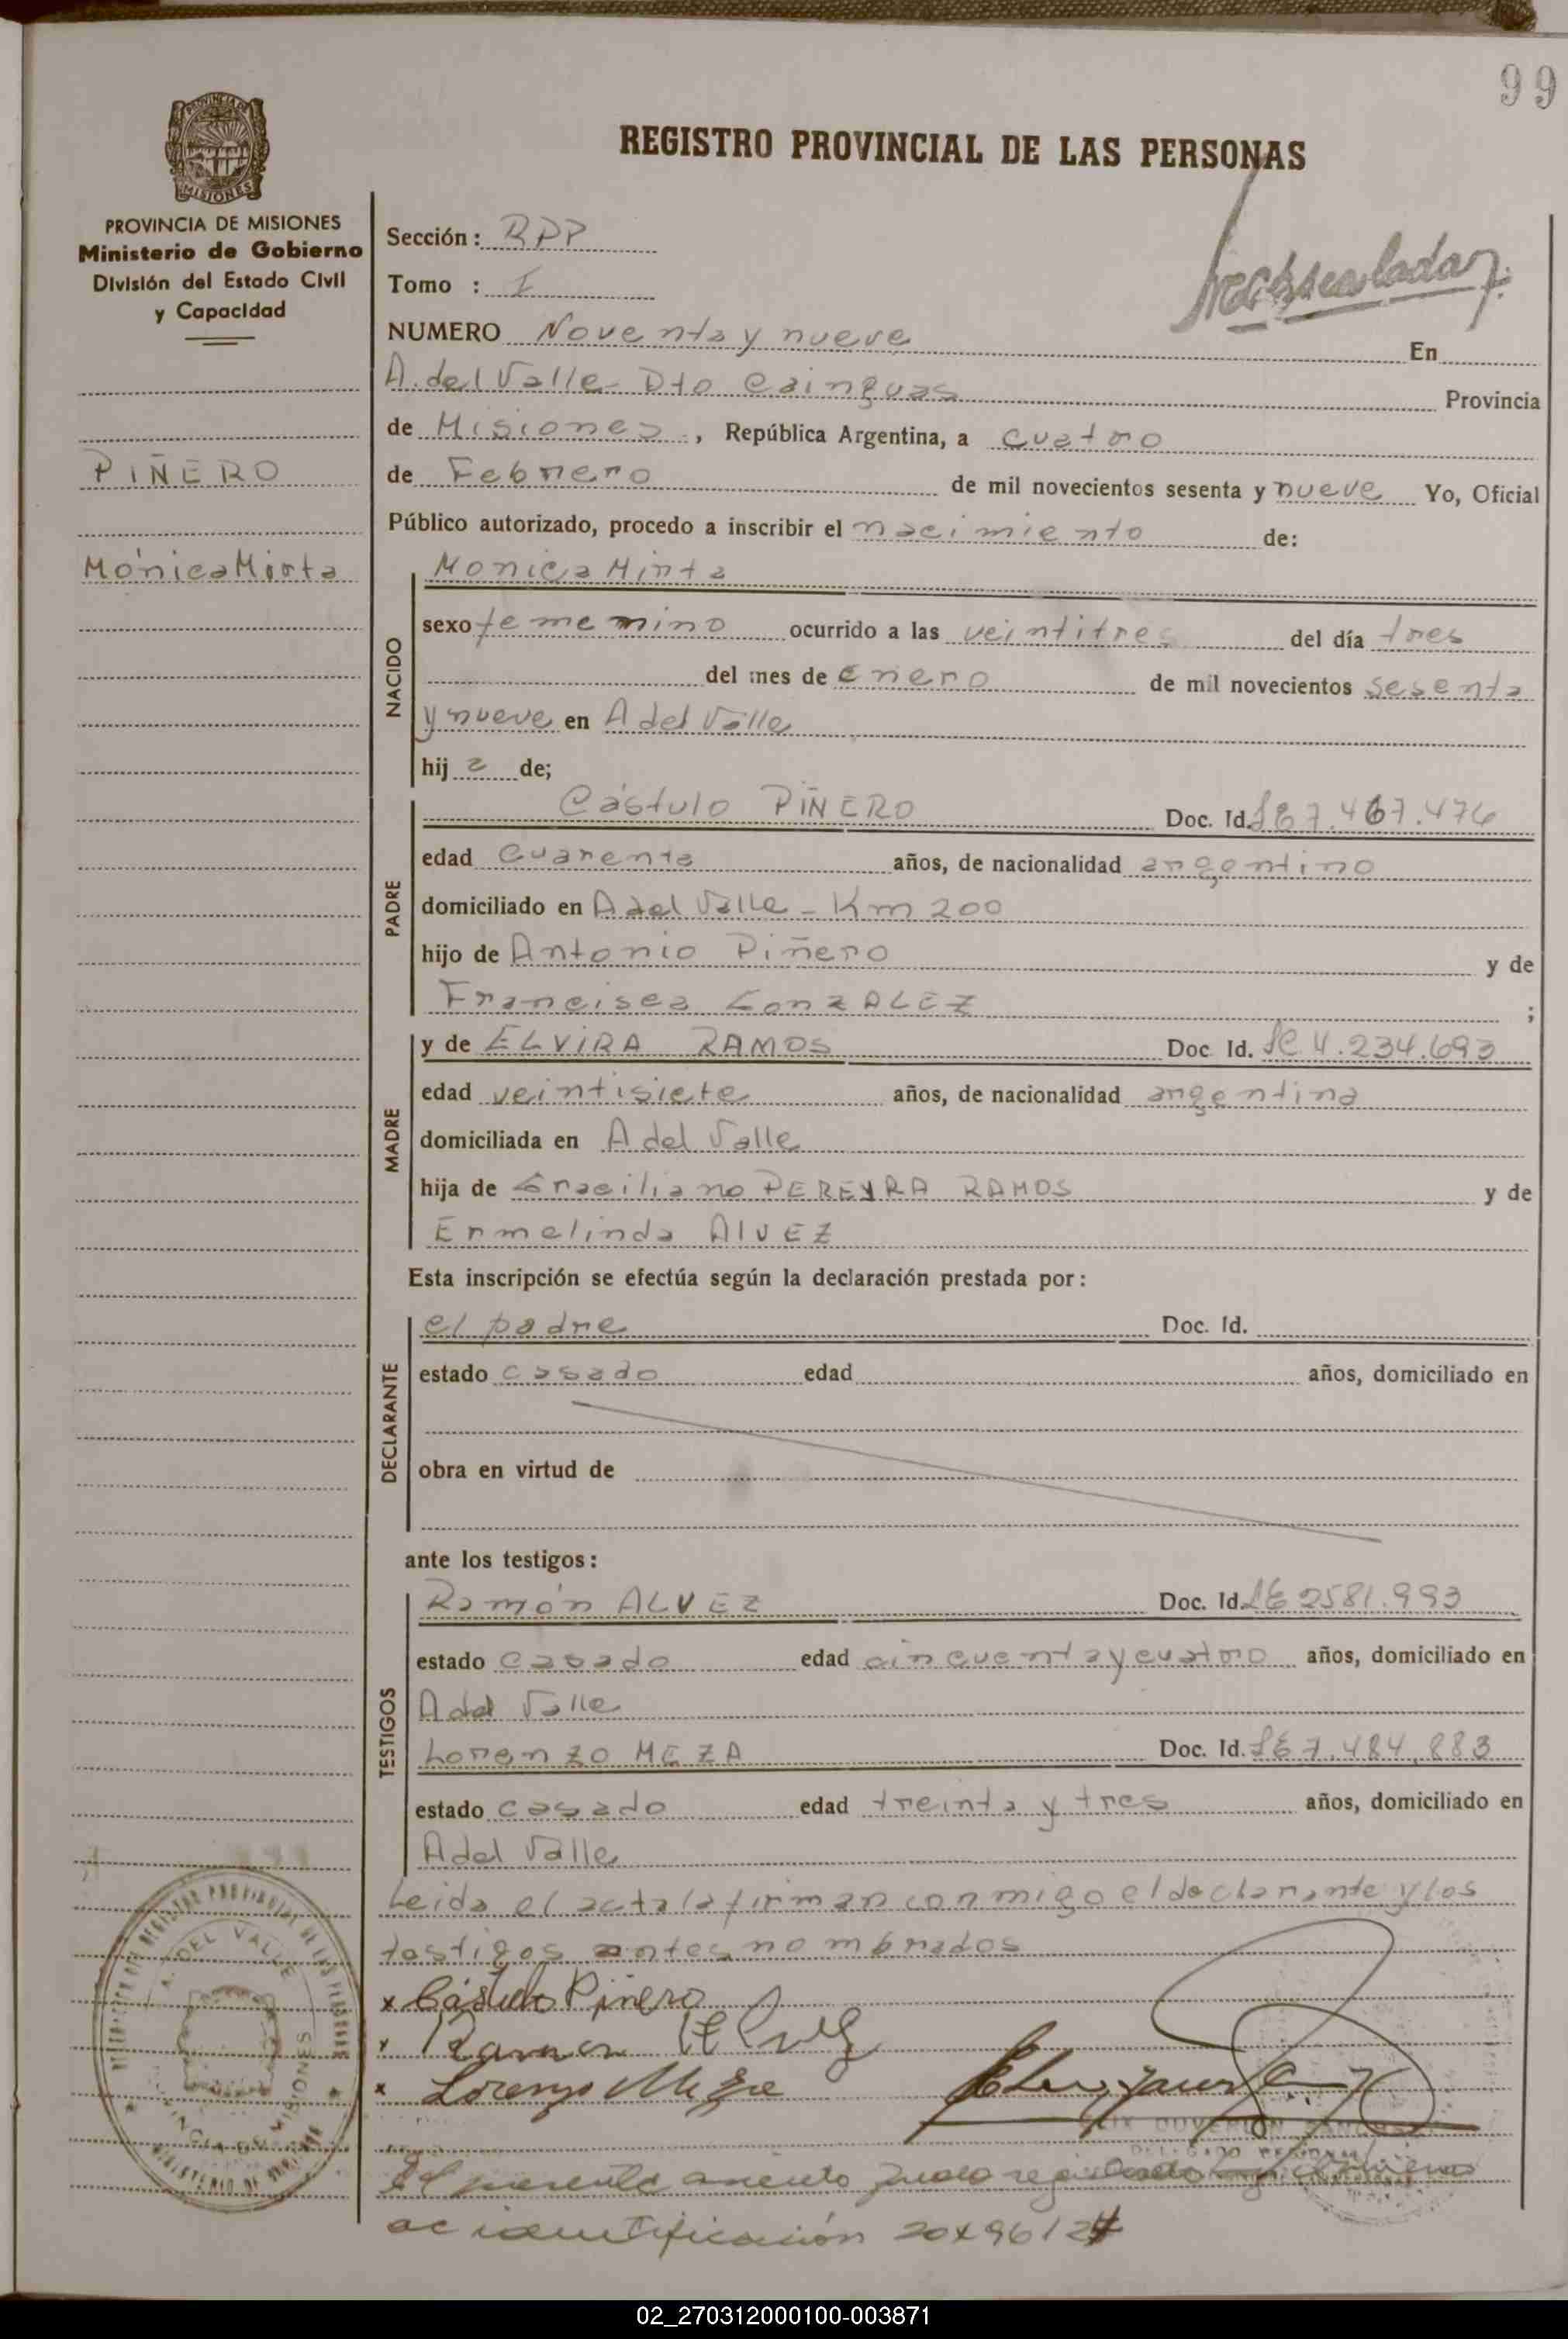 99
REGISTRO PROVINCIAL DE LAS PERSONAS
PROVINCIA DE
MISIONES
PROVINCIA DE MISIONES
Ministerio de Gobierno
División del Estado Civil
y Capacidad
PIÑERO
Mónica Mirta
Sección: RPP
Tomo : I
NUMERO Noventa y nueve En
A. del Valle - Dto Cainguas Provincia
de Misiones, República Argentina, a cuatro
de Febrero de mil novecientos sesenta y nueve Yo, Oficial
Público autorizado, procedo a inscribir el nacimiento de:
NACIDO
Monica Mirta
sexo femenino ocurrido a las veintitres del día tres
del mes de Enero de mil novecientos sesenta
y nueve en A del Valle
hij a de;
PADRE
Cástulo PIÑERO Doc. Id. LE 7.467.476
edad cuarenta años, de nacionalidad argentino
domiciliado en A del Valle - Km 200
hijo de Antonio Piñero y de
Francisca GonzALEZ ;
MADRE
y de ELVIRA RAMOS Doc. Id. LC 4.234.693
edad veintisiete años, de nacionalidad argentina
domiciliada en A del Valle
hija de Graciliano PEREYRA RAMOS y de
Ermelinda AlVEZ
Esta inscripción se efectúa según la declaración prestada por:
DECLARANTE
el padre Doc. Id.
estado casado edad años, domiciliado en
obra en virtud de
ante los testigos:
TESTIGOS
Ramón ALVEZ Doc. Id. LE 2581.993
estado casado edad cincuenta y cuatro años, domiciliado en
A del Valle
Lorenzo MEZA Doc. Id. LE 7.484.883
estado casado edad treinta y tres años, domiciliado en
A del Valle
Leida el acta la firman conmigo el declarante y los
testigos antes nombrados
x Cástulo Piñero
x Ramon
x Lorenzo Meza
A. DEL VALLE
MISIONES
El presente asiento quedo registrado
de identificación 20496124
02_270312000100-003871